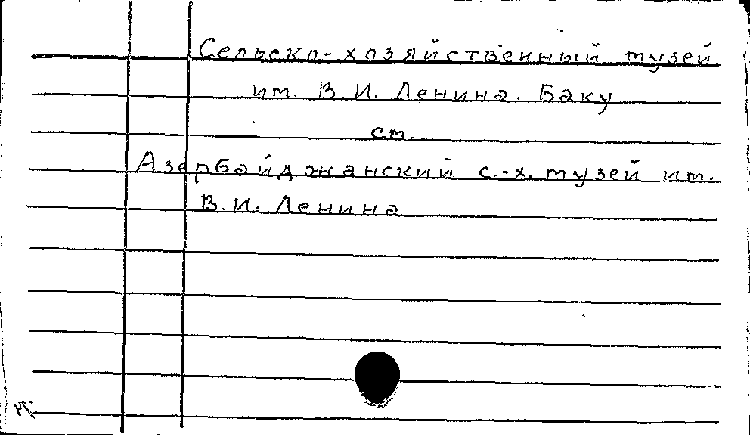 Сельско-хозяйственный музей
им. В.И. Ленина. Баку
см.
Азербайджанский с.-х. музей им.
В.И. Ленина